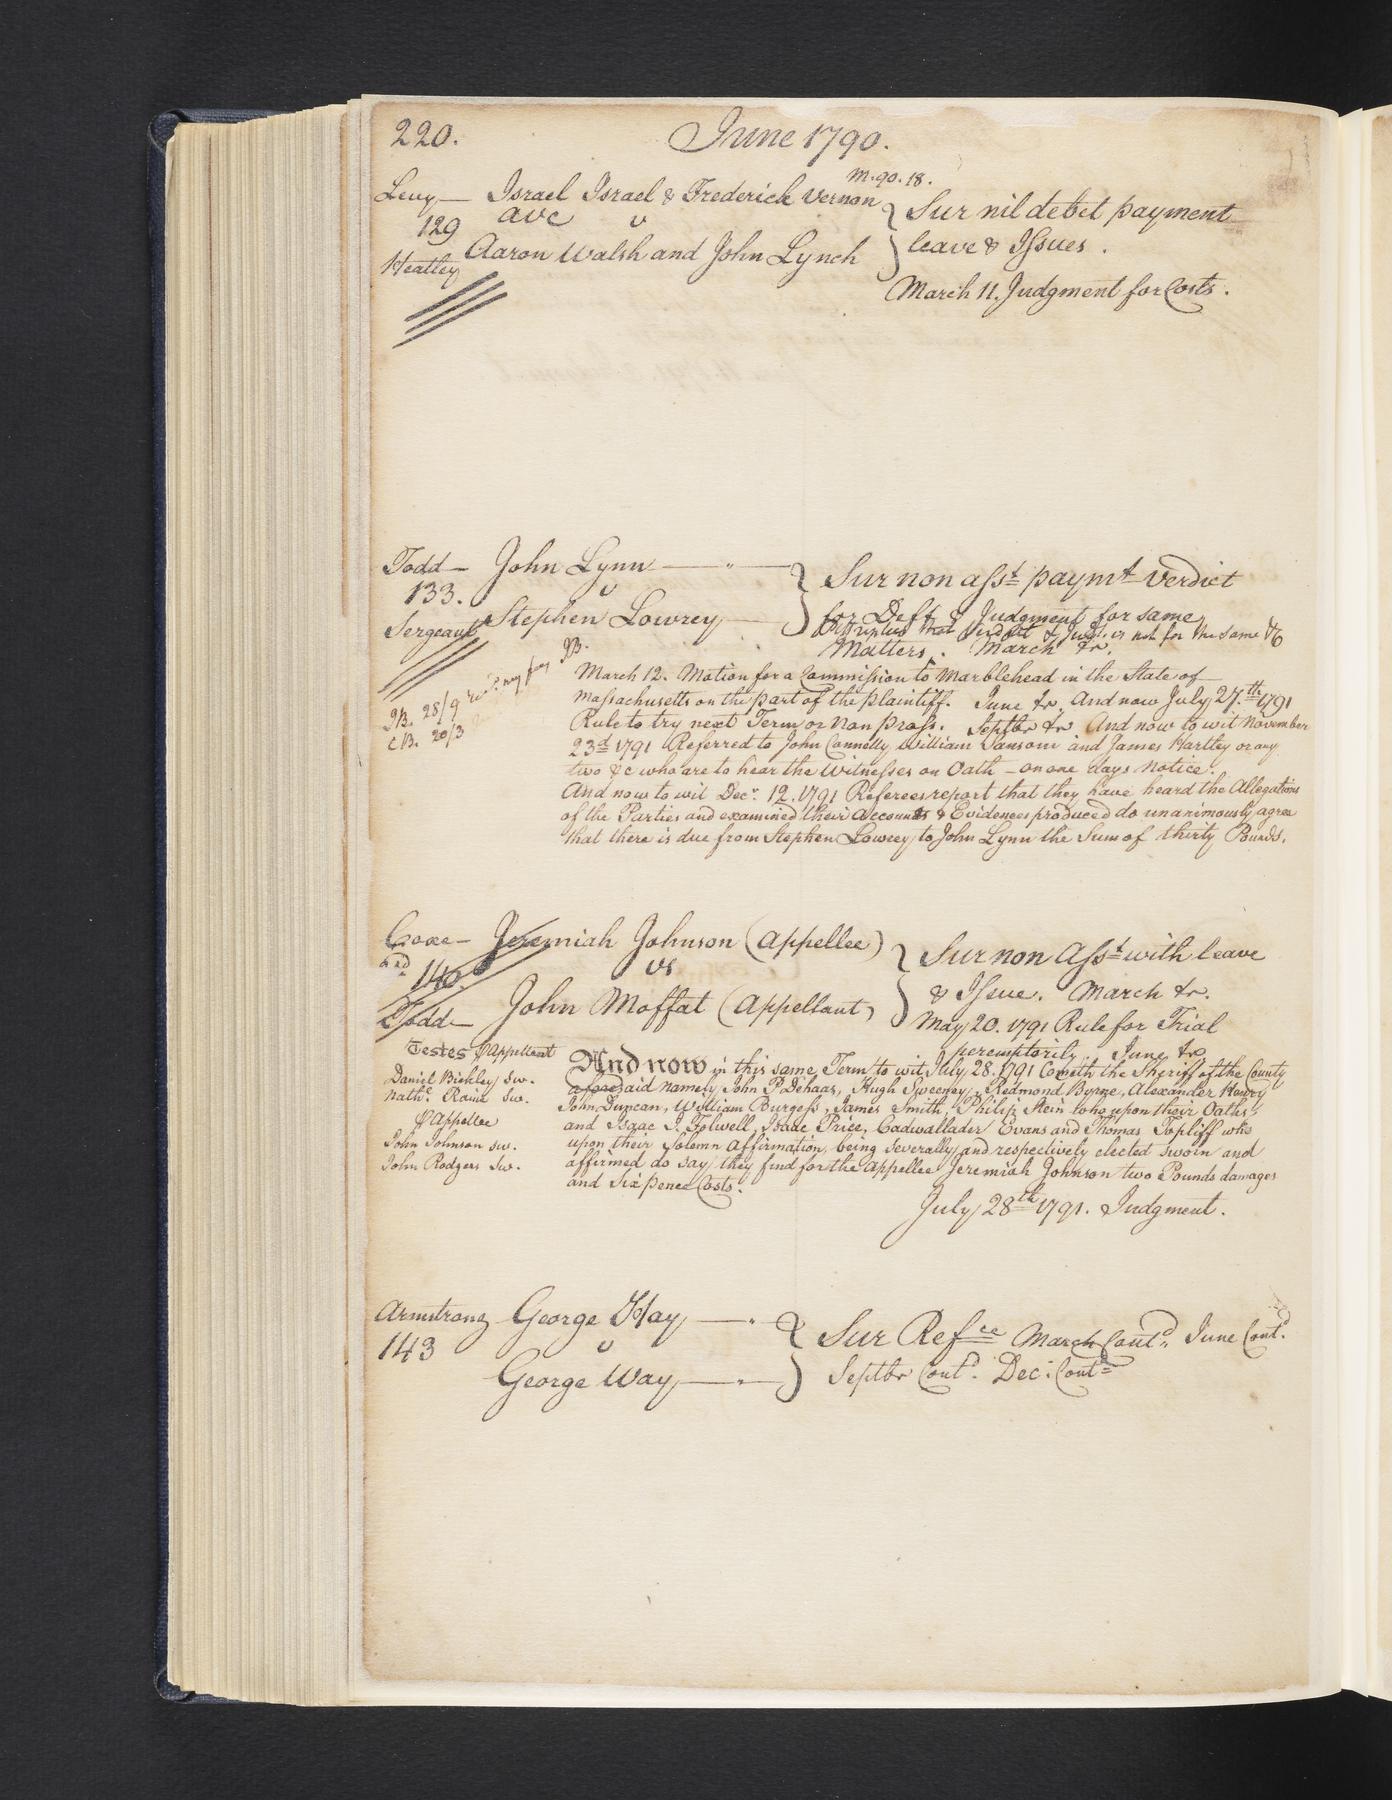 220. June 1790.
M. 90. 18.
Levy — Israel Israel & Frederick Vernon
129 v
Heatley Aaron Walsh and John Lynch
Sur nil debet payment
leave & Issues.
March 11. Judgment for Costs.
Todd — John Lynn
133. v
Sergeant Stephen Lowrey
Sur non asst. paymt Verdict
for Deft & Judgment for same
Matters. March &r.
March 12. Motion for a Commission to Marblehead in the State of
Massachusetts on the part of the plaintiff. June &r. And now July 27.th 1791
Rule to try next Term or Non pross. Septbr &r And now to wit November
23d 1791 Referred to John Connelly William Sansom and James Hartley or any
two &c who are to hear the Witnesses on Oath – on one days notice.
And now to wit Decr. 12. 1791 Referees report that they have heard the Allegations
of the Parties and examined their Accounts & Evidences produced do unanimously agree
that there is due from Stephen Lowrey to John Lynn the Sum of thirty Pounds.
J.B. 28/9
C.B. 20/3
Coxe — Jeremiah Johnson (Appellee)
140. vs
Todd — John Moffat (Appellant)
Sur non Asst with leave
& Issue. March &r.
May 20. 1791 Rule for Trial
peremptorily June &r
Testes Appellant
Daniel Bickley Sw.
Sw.
Appellee
John Johnson sw.
John Rodgers Sw.
And now in this same Term to wit July 28. 1791 Cometh the Sheriff of the County
aforesaid namely John P Dehaas, Hugh Sweeney, Redmond Byrne, Alexander Henry
John Duncan, William Burgess, James Smith, Philip Stein who upon their Oaths
and Isaac I. Folwell, Isaac Price, Cadwallader Evans and Thomas Topliff who
upon their Solemn affirmation being severally and respectively elected sworn and
affirmed do say they find for the appellee Jeremiah Johnson two Pounds damages
and Six pence Costs.
July 28th 1791. Judgment.
Armstrong George Hay
143 v
George Way
Sur Refce March Contd. June Contd.
Septbr Contd. Dec: Contd